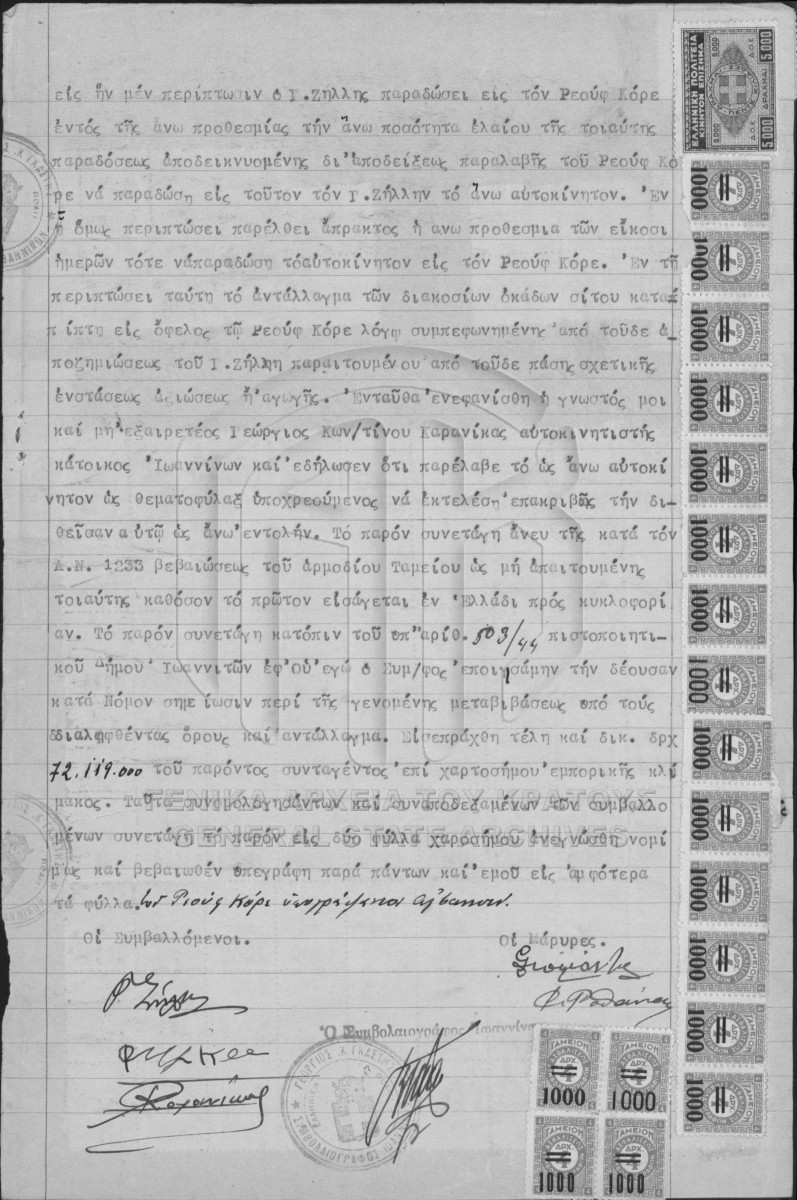 εἰς ἥν μέν περίπτωσιν ὁ Γ. Ζήλλης παραδώσει εἰς τόν Ρεούφ Κόρε
ἐντός τῆς ἄνω προθεσμίας τήν ἄνω ποσότητα ἐλαίου τῆς τοιαύτης
παραδόσεως ἀποδεικνυομένης δι'ἀποδείξεως παραλαβῆς τοῦ Ρεούφ Κό
ρε νά παραδώση εἰς τοῦτον τόν Γ. Ζήλλην τό ἄνω αὐτοκίνητον. Ἐν
ᾗ ὅμως περιπτώσει παρέλθει ἄπρακτος ἡ ανω προθεσμια τῶν εἴκοσι
ἡμερῶν τότε νάπαραδώση τόαὐτοκίνητον εἰς τόν Ρεούφ Κόρε. Ἐν τῇ
περιπτώσει ταύτη τό ἀντάλλαγμα τῶν διακοσίων ὀκάδων σίτου κατα
πίπτη εἰς ὄφελος τῷ Ρεούφ Κόρε λόγῳ συμπεφωνημένης ἀπό τοῦδε ἀ-
ποζημιώσεως τοῦ Γ. Ζήλλη παραιτουμένου ἀπό τοῦδε πάσης σχετικῆς
ἐνστάσεως ἀξιώσεως ἤ ἀγωγῆς. Ἐνταῦθα ἐνεφανίσθη ὁ γνωστός μοι
καί μή ἐξαιρετέος Γεώργιος Κων/τίνου Καρανίκας αὐτοκινητιστής
κάτοικος Ἰωαννίνων καί ἐδήλωσεν ὅτι παρέλαβε τό ὡς ἄνω αὐτοκί
νητον ὡς θεματοφύλαξ ὑποχρεούμενος νά ἐκτελέση ἐπακριβῶς τήν δι-
θεῖσαν αυτῷ ὡς ἄνω ἐντολήν. Τό παρόν συνετάγη ἄνευ τῆς κατά τόν
Α.Ν. 1233 βεβαιώσεως τοῦ ἁρμοδίου Ταμείου ὡς μή ἀπαιτουμένης
τοιαύτης καθόσον τό πρῶτον εἰσάγεται ἐν Ἑλλάδι πρός κυκλοφορί
αν. Τό παρόν συνετάγη κατόπιν τοῦ ὑπ'ἀριθ. 503/44 πιστοποιητι-
κοῦ Δήμου Ἰωαννιτῶν ἐφ'οὗ ἐγώ ὁ Συμ/φος ἐποιησάμην τήν δέουσαν
κατά Νόμον σημείωσιν περί τῆς γενομένης μεταβιβάσεως ὑπό τούς
διαληφθέντας ὅρους καί ἀντάλλαγμα. Εἰσεπράχθη τέλη καί δικ. δρχ
72.119.000 τοῦ παρόντος συνταγέντος ἐπί χαρτοσήμου ἐμπορικῆς κλί
μακος. Ταῦτα συνομολογησάντων καί συναποδεξαμένων τῶν συμβαλλο
μένων συνετάγη τό παρόν εἰς δύο φύλλα χαροσήμου ἀνεγνώσθη νομί
μως καί βεβαιωθέν ὑπεγράφη παρά πάντων καί ἐμοῦ εἰς ἀμφότερα
τά φύλλα. τοῦ Ρεούφ Κόρε
Οἱ Συμβαλλόμενοι. Οἱ Μάρυρες.
Ὁ Συμβολαιογράφος Ἰωαννίνων
ΓΕΝΙΚΑ ΑΡΧΕΙΑ ΤΟΥ ΚΡΑΤΟΥΣ
GENERAL STATE ARCHIVES
ΕΛΛΗΝΙΚΗ ΠΟΛΙΤΕΙΑ
ΚΙΝΗΤΟΝ ΕΠΙΣΗΜΑ
5.000
Δ.Ο.Ε.
ΔΡΑΧΜΑΙ
5.000
1000
1000
1000
1000
1000
1000
1000
1000
1000
1000
1000
1000
1000
1000
ΤΑΜΕΙΟΝ
ΔΡΧ
1000
1000
1000
1000